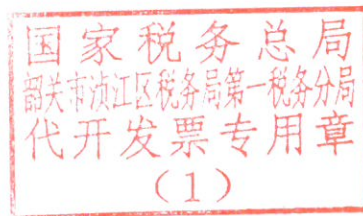 国家税务总局
韶关市浈江区税务局第一税务分局
代开发票专用章
（1）